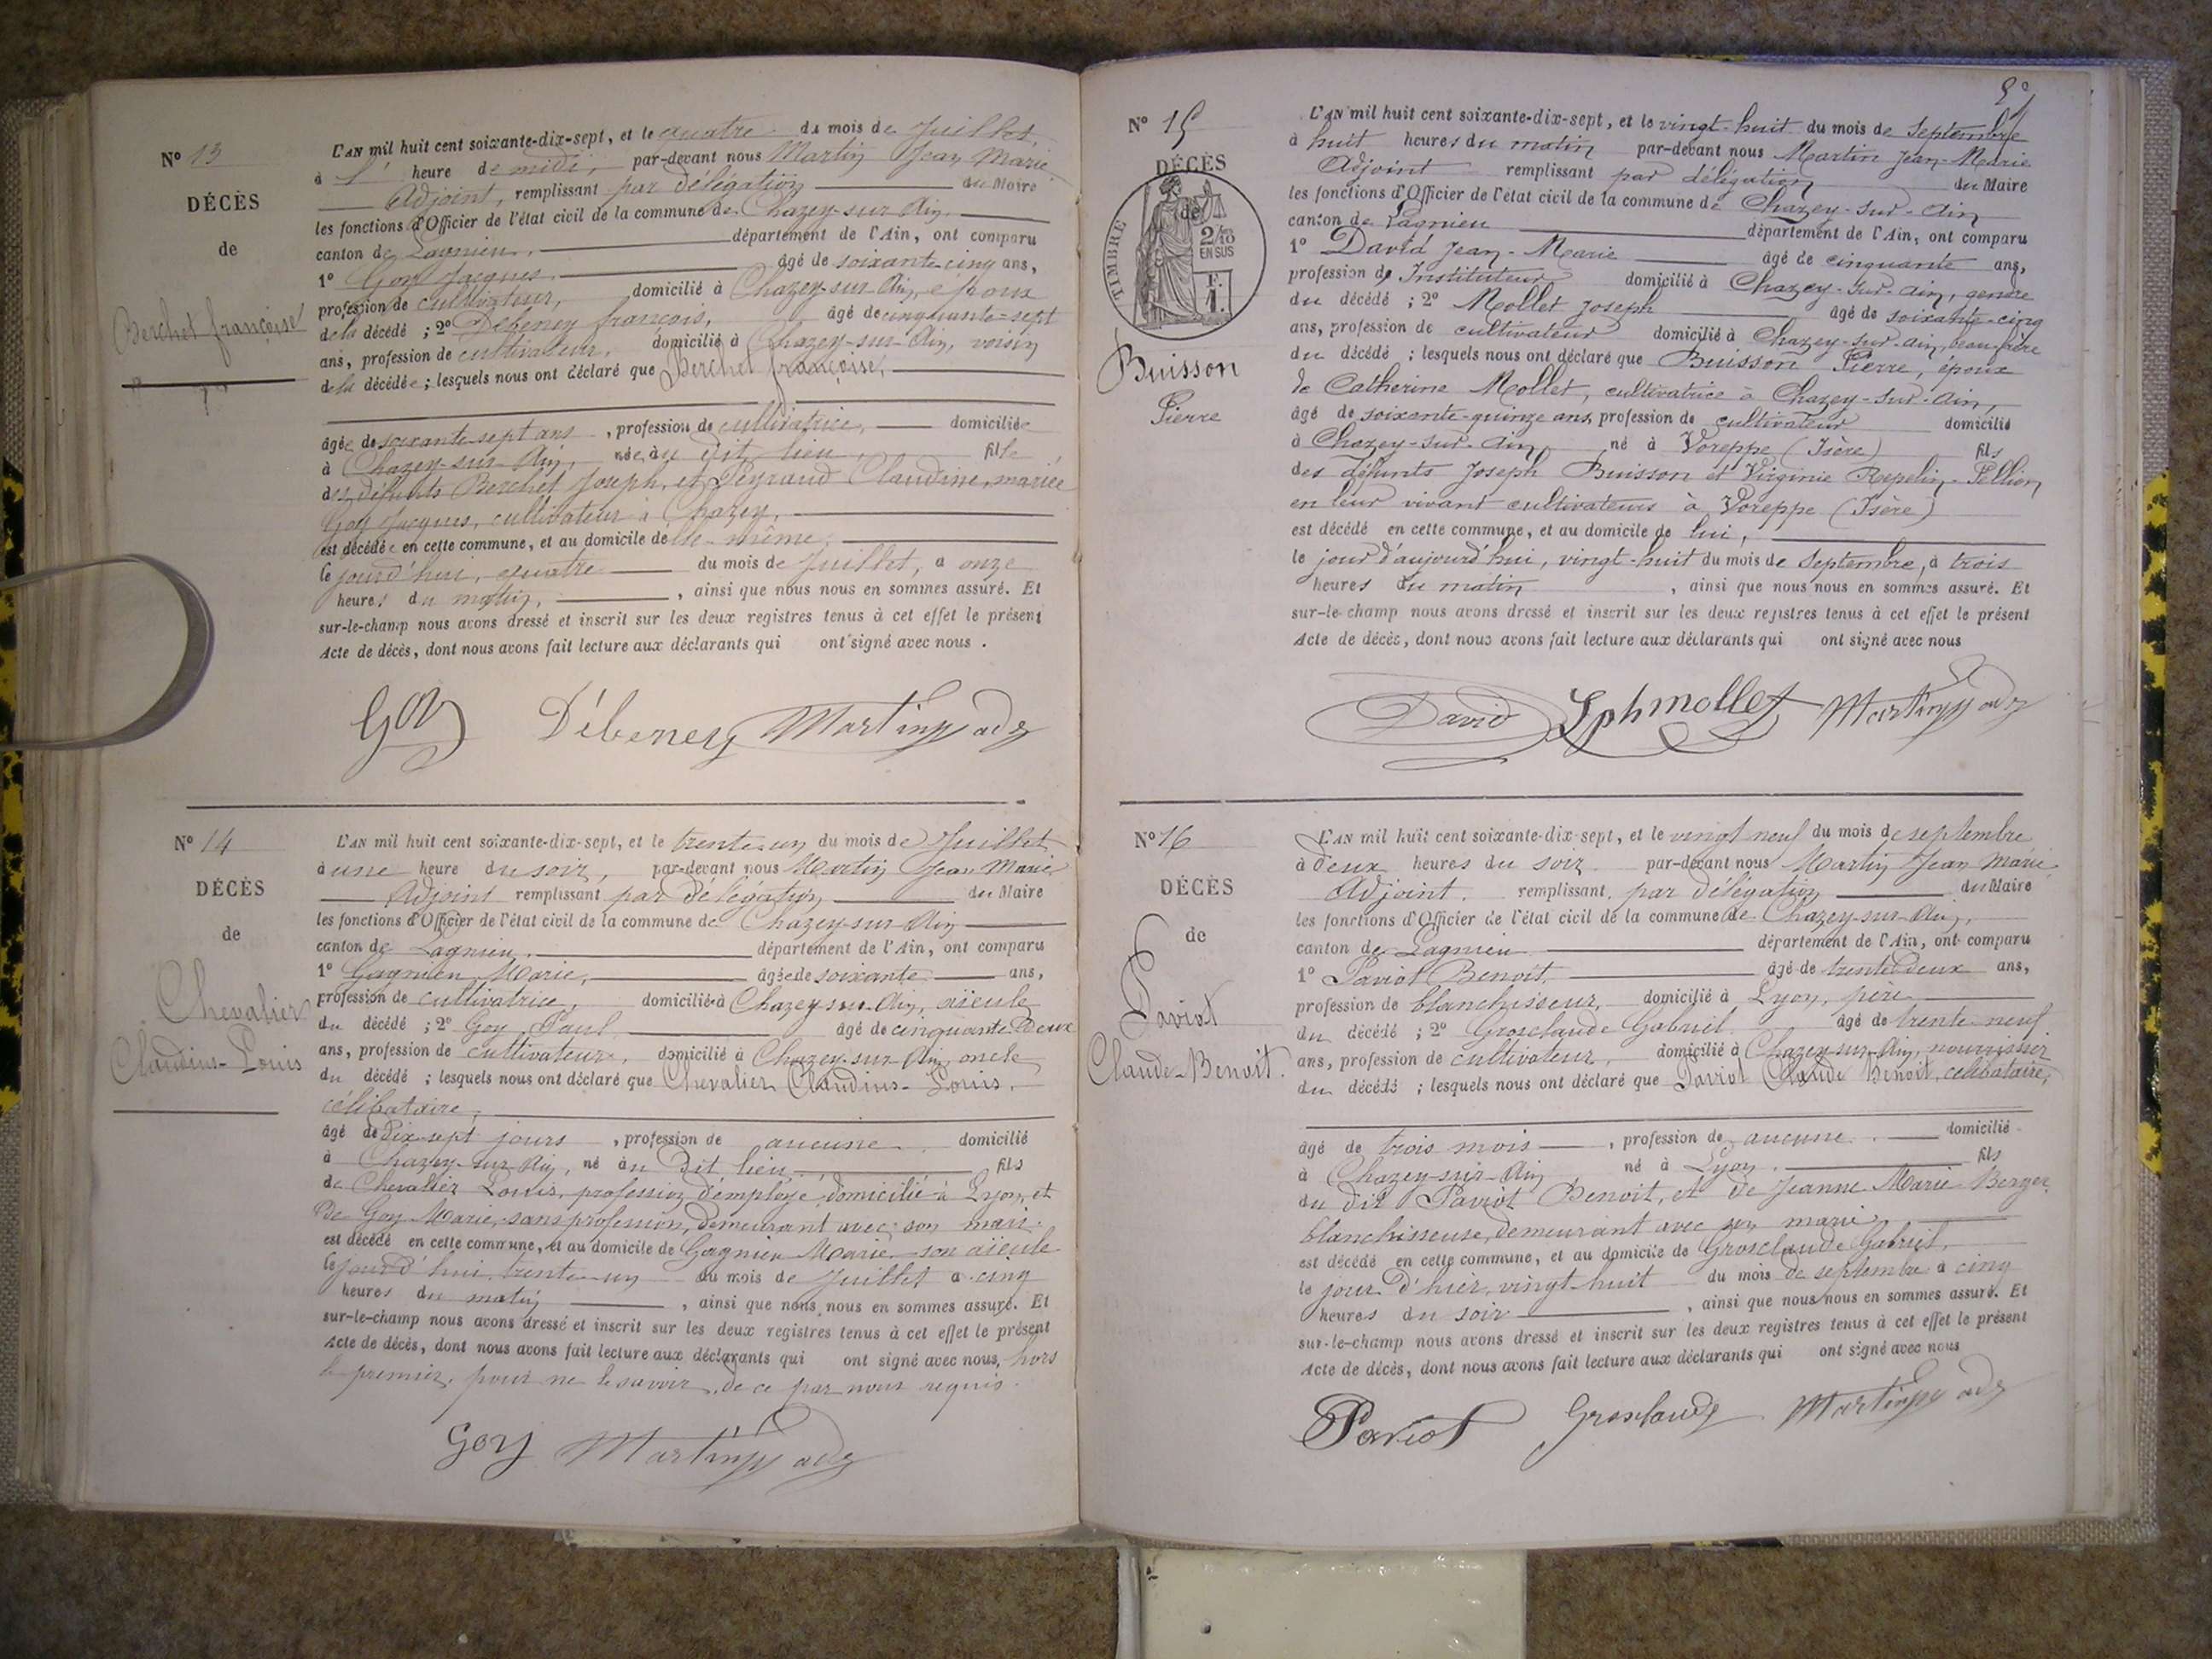 N° 13
DÉCÈS
de
Berchet françoise
L'AN mil huit cent soixante-dix-sept, et le quatre du mois de Juillet,
à l' heure de midi, par-devant nous Martin Jean Marie
Adjoint, remplissant par délégation du Maire
les fonctions d'Officier de l'état civil de la commune de Chazey-sur-Ain,
canton de Lagnieu, département de l'Ain, ont comparu
1° Goy Jacques âgé de soixante-cinq ans,
profession de cultivateur, domicilié à Chazey-sur-Ain, époux
de la décédé ; 2° Débeney françois, âgé de cinquante-sept
ans, profession de cultivateur, domicilié à Chazey-sur-Ain, voisin
de la décédée ; lesquels nous ont déclaré que Berchet françoise,
âgée de soixante-sept ans, profession de cultivatrice, domiciliée
à Chazey-sur-Ain, née au dit lieu, fille
des défunts Berchet Joseph, et Peyraud Claudine, mariée
Goy Jacques, cultivateur à Chazey,
est décédée en cette commune, et au domicile d'elle-même,
le jourd'hui, quatre du mois de Juillet, à onze
heures du matin, , ainsi que nous nous en sommes assuré. Et
sur-le-champ nous avons dressé et inscrit sur les deux registres tenus à cet effet le présent
Acte de décès, dont nous avons fait lecture aux déclarants qui ont signé avec nous .
Goy Débeney Martin adj
N° 14
DÉCÈS
de
Chevalier
Claudius-Louis
L'AN mil huit cent soixante-dix-sept, et le trente-un du mois de Juillet,
à une heure du soir, par-devant nous Martin Jean Marie
Adjoint remplissant par délégation du Maire
les fonctions d'Officier de l'état civil de la commune de Chazey-sur-Ain
canton de Lagnieu, département de l'Ain, ont comparu
1° Gagnieu Marie, âgée de soixante ans,
profession de cultivatrice, domiciliée à Chazey-sur-Ain, aïeule
du décédé ; 2° Goy Paul âgé de cinquante deux
ans, profession de cultivateur, domicilié à Chazey-sur-Ain, oncle
du décédé ; lesquels nous ont déclaré que Chevalier Claudius-Louis,
célibataire,
âgé de dix-sept jours , profession de aucune domicilié
à Chazey-sur-Ain, né au dit lieu fils
de Chevalier Louis, profession d'employé domicilié à Lyon, et
de Goy Marie, sans profession, demeurant avec son mari.
est décédé en cette commune, et au domicile de Gagnieu Marie son aïeule
le jourd'hui, trente-un du mois de Juillet à cinq
heures du matin , ainsi que nous nous en sommes assuré. Et
sur-le-champ nous avons dressé et inscrit sur les deux registres tenus à cet effet le présent
Acte de décès, dont nous avons fait lecture aux déclarants qui ont signé avec nous, hors
le premier, pour ne le savoir, de ce par nous requis.
Goy Martin adj
N° 15
DÉCÈS
de
TIMBRE
2/10
EN SUS
F.
1.
Buisson
Pierre
L'AN mil huit cent soixante-dix-sept, et le vingt-huit du mois de Septembre
à huit heures du matin par-devant nous Martin Jean-Marie
Adjoint remplissant par délégation du Maire
les fonctions d'Officier de l'état civil de la commune de Chazey-sur-Ain
canton de Lagnieu département de l'Ain, ont comparu
1° David Jean-Marie âgé de cinquante ans,
profession de Instituteur domicilié à Chazey-sur-Ain, gendre
du décédé ; 2° Mollet Joseph âgé de soixante-cinq
ans, profession de cultivateur domicilié à Chazey-sur-Ain, beau-frère
du décédé ; lesquels nous ont déclaré que Buisson Pierre, époux
de Catherine Mollet, cultivatrice à Chazey-sur-Ain,
âgé de soixante-quinze ans, profession de cultivateur domicilié
à Chazey-sur-Ain, né à Voreppe (Isère) fils
des défunts Joseph Buisson et Virginie Repelin-Pellion
en leur vivant cultivateurs à Voreppe (Isère)
est décédé en cette commune, et au domicile de lui,
le jour d'aujourd'hui, vingt-huit du mois de Septembre, à trois
heures du matin , ainsi que nous nous en sommes assuré. Et
sur-le-champ nous avons dressé et inscrit sur les deux registres tenus à cet effet le présent
Acte de décès, dont nous avons fait lecture aux déclarants qui ont signé avec nous
David Jph mollet Martin adj
N° 16
DÉCÈS
de
Paviot
Claude-Benoit.
L'AN mil huit cent soixante-dix-sept, et le vingt neuf du mois de septembre
à deux heures du soir par-devant nous Martin Jean Marie
Adjoint. remplissant par délégation du Maire
les fonctions d'Officier de l'état civil de la commune de Chazey-sur-Ain,
canton de Lagnieu département de l'Ain, ont comparu
1° Paviot Benoit, âgé de trente deux ans,
profession de blanchisseur, domicilié à Lyon, père
du décédé ; 2° Grosclaude Gabriel âgé de trente-neuf
ans, profession de cultivateur, domicilié à Chazey-sur-Ain, nourrisseur
du décédé ; lesquels nous ont déclaré que Paviot Claude Benoit, célibataire,
âgé de trois mois , profession de aucune. domicilié
à Chazey-sur-Ain né à Lyon. fils
du dit Paviot Benoit, et de Jeanne Marie Berger
blanchisseuse, demeurant avec son mari,
est décédé en cette commune, et au domicile de Grosclaude Gabriel,
le jour d'hier, vingt-huit du mois de septembre à cinq
heures du soir , ainsi que nous nous en sommes assuré. Et
sur-le-champ nous avons dressé et inscrit sur les deux registres tenus à cet effet le présent
Acte de décès, dont nous avons fait lecture aux déclarants qui ont signé avec nous
Paviot Grosclaude Martin adj